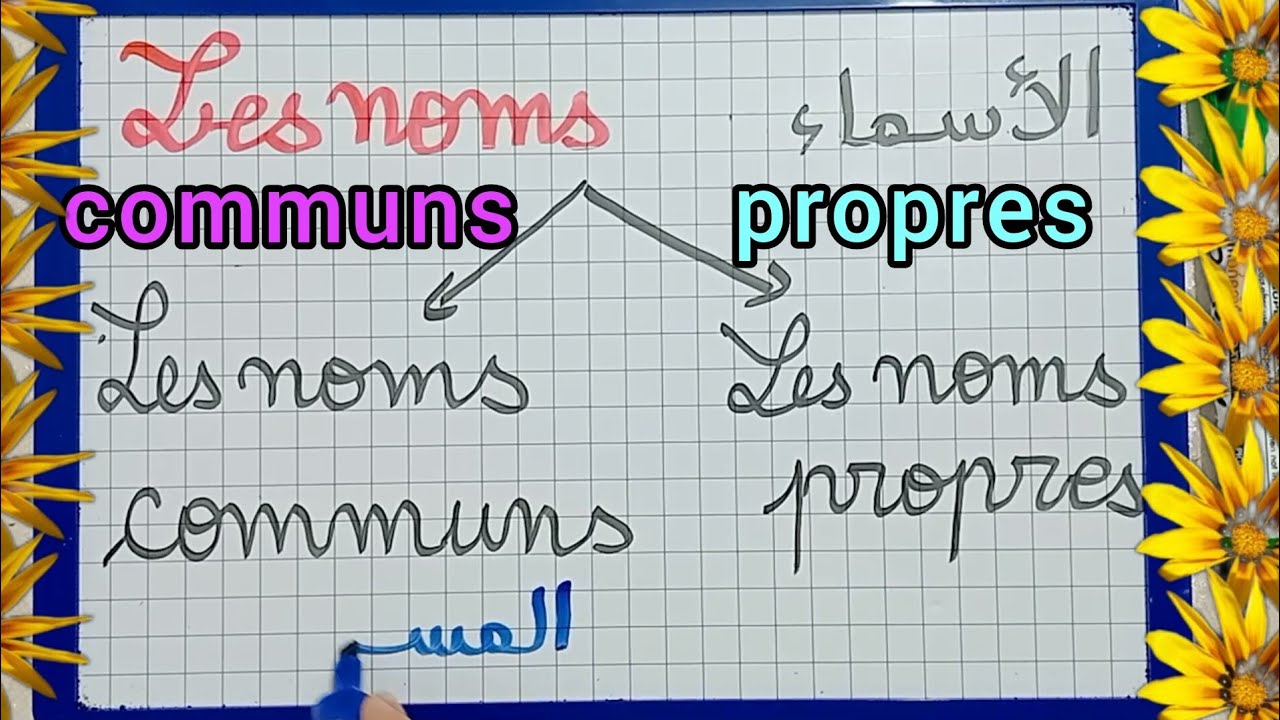 Les noms الأسماء
communs propres
Les noms Les noms
communs propres
المسـ